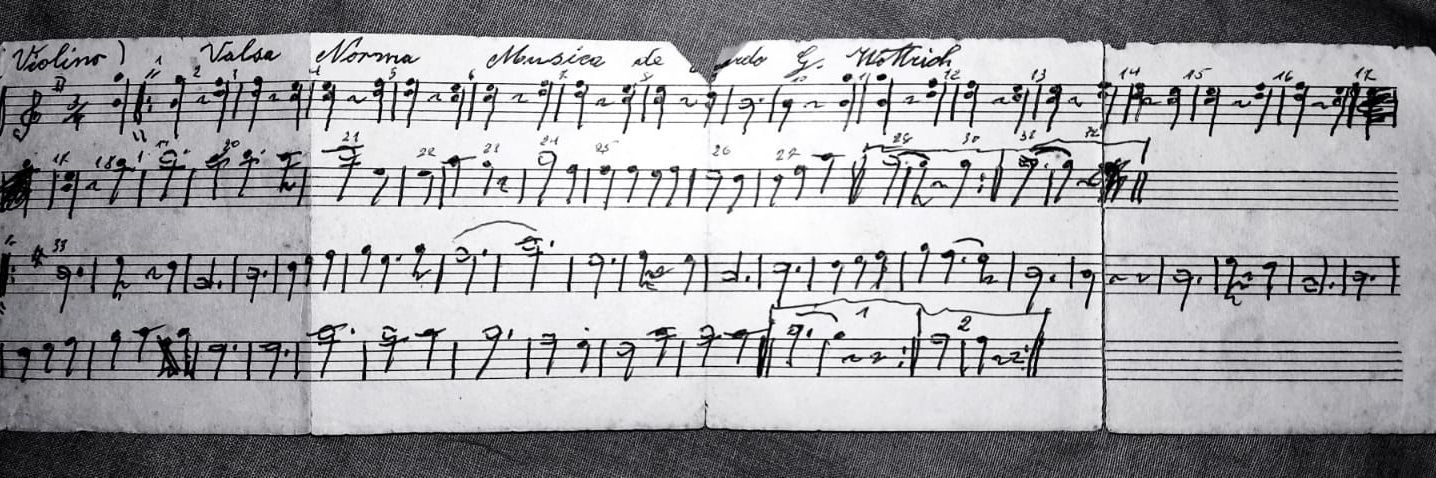 Violino) Valsa Norma Musica de G. Wottrich
II 3/4 1 2 3 4 5 6 7 8 10 11 12 13 14 15 16 17
17 18 19 20 21 22 23 24 25 26 27 29 30 31 32
33
1 2